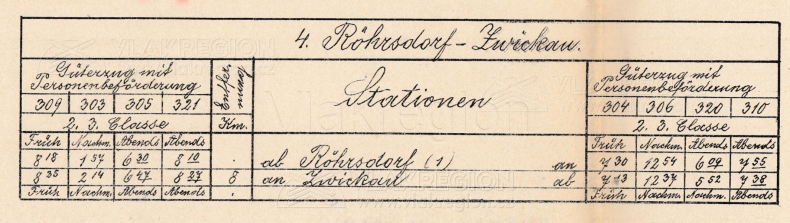 4. Röhrsdorf - Zwickau.
Güterzug mit Personenbeförderung Entfernung Stationen Güterzug mit Personenbeförderung
309 303 305 321 304 306 320 310
2. 3. Classe Km. 2. 3. Classe
Früh Nachm. Abends Abends Früh Nachm. Nachm. Abends
8 18 1 57 6 30 8 10 . ab Röhrsdorf (1) an 7 30 12 54 6 09 7 55
8 35 2 14 6 47 8 27 8 an Zwickau ab 7 13 12 37 5 52 7 38
Früh Nachm. Abends Abends . Früh Nachm. Nachm. Abends